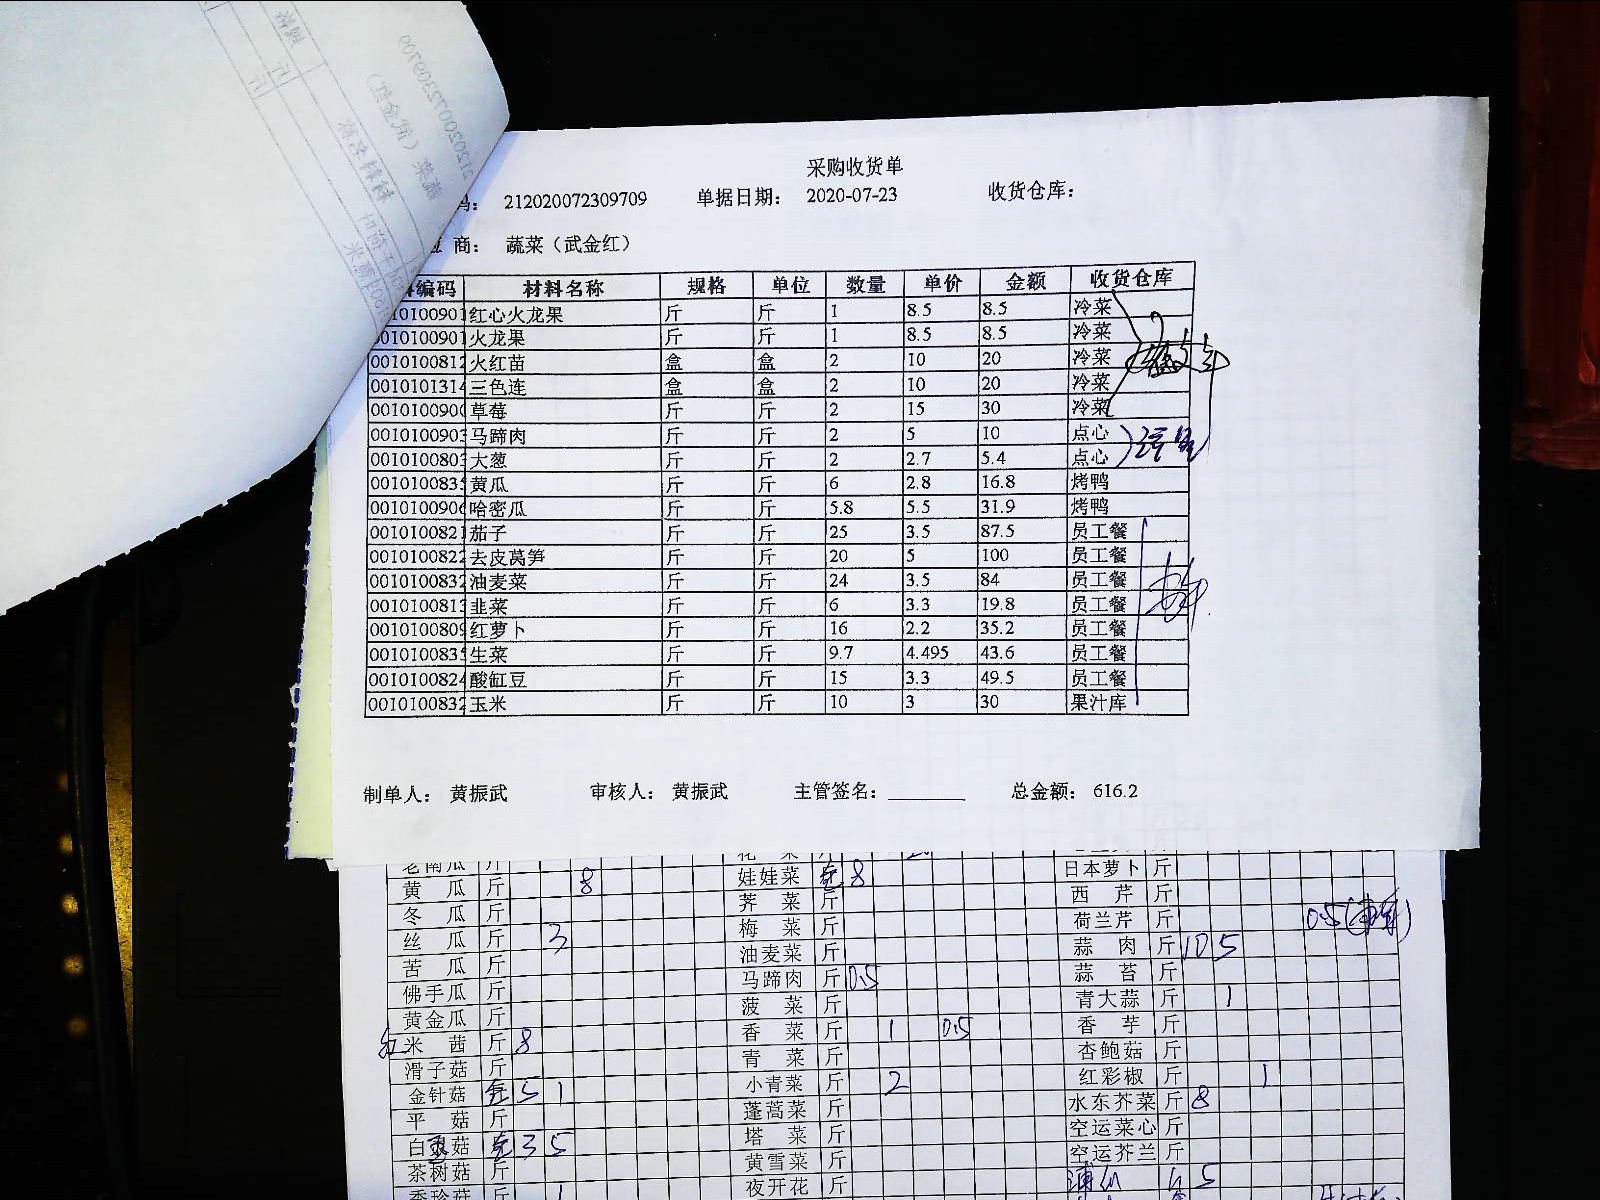 采购收货单
码： 212020072309709 单据日期： 2020-07-23 收货仓库：
商： 蔬菜（武金红）
编码 材料名称 规格 单位 数量 单价 金额 收货仓库
010100901 红心火龙果 斤 斤 1 8.5 8.5 冷菜
0010100901 火龙果 斤 斤 1 8.5 8.5 冷菜
0010100812 火红苗 盒 盒 2 10 20 冷菜
0010101314 三色连 盒 盒 2 10 20 冷菜
0010100900 草莓 斤 斤 2 15 30 冷菜
0010100903 马蹄肉 斤 斤 2 5 10 点心
0010100803 大葱 斤 斤 2 2.7 5.4 点心
0010100835 黄瓜 斤 斤 6 2.8 16.8 烤鸭
0010100906 哈密瓜 斤 斤 5.8 5.5 31.9 烤鸭
0010100821 茄子 斤 斤 25 3.5 87.5 员工餐
0010100822 去皮莴笋 斤 斤 20 5 100 员工餐
0010100832 油麦菜 斤 斤 24 3.5 84 员工餐
0010100813 韭菜 斤 斤 6 3.3 19.8 员工餐
0010100809 红萝卜 斤 斤 16 2.2 35.2 员工餐
0010100835 生菜 斤 斤 9.7 4.495 43.6 员工餐
0010100824 酸缸豆 斤 斤 15 3.3 49.5 员工餐
0010100832 玉米 斤 斤 10 3 30 果汁库
制单人： 黄振武 审核人： 黄振武 主管签名： 总金额： 616.2
老南瓜 斤 花菜 斤
黄瓜 斤 8 娃娃菜 8 日本萝卜 斤
冬瓜 斤 荠菜 斤 西芹 斤
丝瓜 斤 3 梅菜 斤 荷兰芹 斤 0.5
苦瓜 斤 油麦菜 斤 蒜肉 斤 10 5
佛手瓜 斤 马蹄肉 斤 0.5 蒜苔 斤
黄金瓜 斤 菠菜 斤 青大蒜 斤 1
红米茜 斤 8 香菜 斤 1 0.5 香芋 斤
滑子菇 斤 青菜 斤 杏鲍菇 斤
金针菇 5 1 小青菜 斤 2 红彩椒 斤 1
平菇 斤 蓬蒿菜 斤 水东芥菜 斤 8
白菇 3 5 塔菜 斤 空运菜心 斤
茶树菇 斤 黄雪菜 斤 空运芥兰 斤
香珍菇 斤 1 夜开花 斤 5